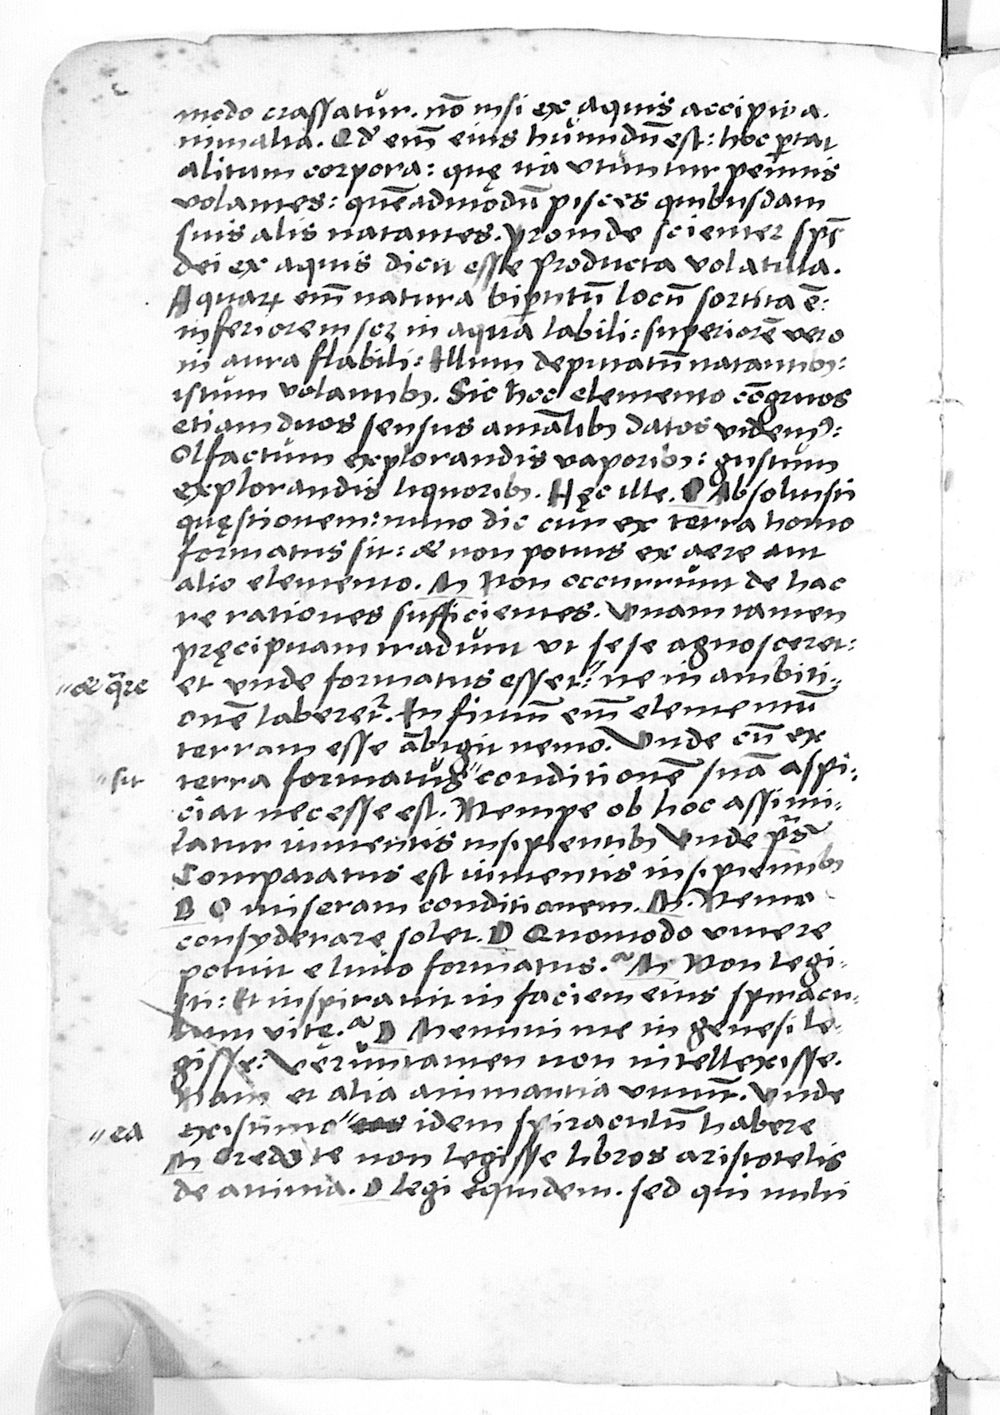 modo crassatur. nō nisi ex aquis accipit a.
nimalia. Qđ em̄ eius humidū est: hoc ꝑtat
alitum corpora: quę ita utuntur pennis
volantes: quēadmodū pisces quibusdam
suis alis natantes. Proinde scienter spūs
dei ex aquis dicit esse producta volatilia.
Aquaꝝ em̄ natura bipertitū locū sortita ē:
inferiorem scꝫ in aqua labili: superiorē vero
in aura flabili: Illum deputatū natantibꝫ:
istum volantibꝫ. Sic hoc elemento cōgruos
etiam duos sensus aīalibꝫ datos videmꝰ:
Olfactum explorandis vaporibꝫ: gustum
explorandis liquoribꝫ. Hęc ille. D Absoluisti
quęstionem: nunc dic cur ex terra homo
formatus sit: & non potius ex aere aut
alio elemento. M Non occurrunt de hac
re rationes sufficientes. Vnam tamen
pręcipuam tradunt ut sese agnosceret:
"& q̄re et vnde formatus esset:" ne in ambiti-
onē laberet᷑. Infimū em̄ elementū
terram esse ābigit nemo. Vnde cū ex
"sit terra formatus" conditionē suā aspi-
ciat necesse est. Nempe ob hoc assimi-
latur iumentis insipientibꝫ Vnde p̄s
Comparatus est iumentis insipientibꝫ
D O miseram conditionem. M. Nemo
consyderare solet. D Quomodo viuere
potuit e limo formatus. M Non legi-
sti: Et inspirauit in faciem eius spiracu-
lum vitę. D Memini me in genesi le-
gisse: Veruntamen non intellexisse.
Nam et alia animantia viuunt. Vnde
"ea existimo" eos idem spiraculū habere
M Credo te non legisse libros aristotelis
de anima. D legi equidem. sed qui mihi